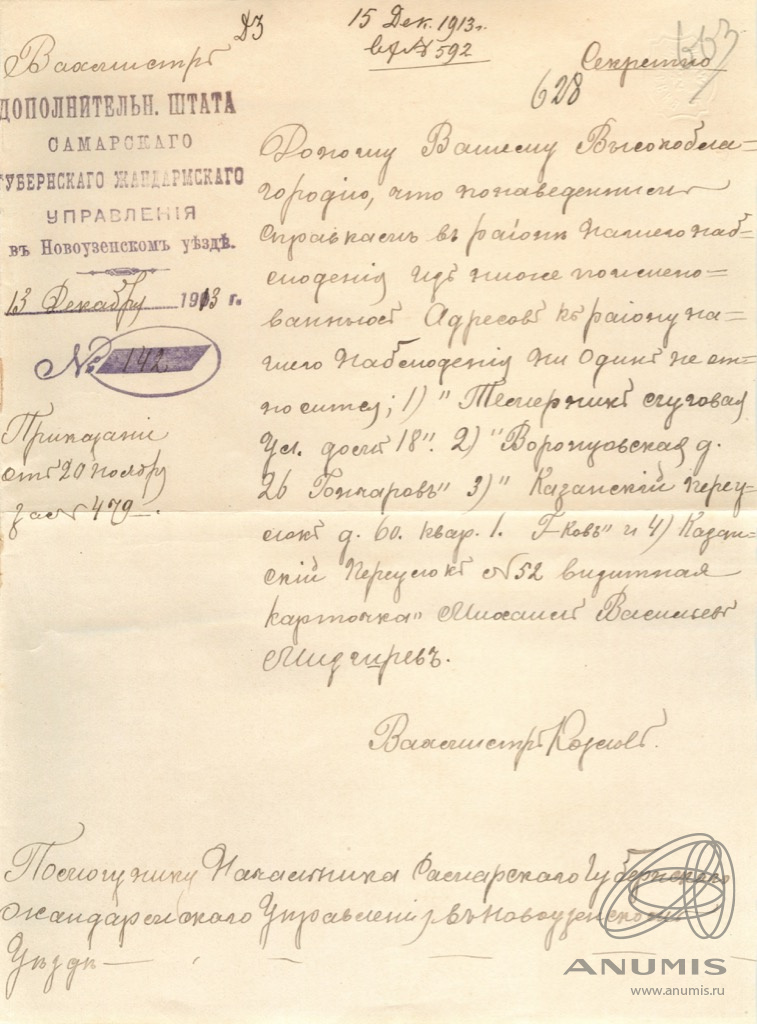 ДЗ
15 Дек. 1913 г.
вх № 592
Секретно
663
628
Вахмистръ
ДОПОЛНИТЕЛЬН. ШТАТА
САМАРСКАГО
ГУБЕРНСКАГО ЖАНДАРМСКАГО
УПРАВЛЕНІЯ
въ Новоузенскомъ уѣздѣ.
13 Декабря 1913 г.
№ 142
Приказаніе
отъ 20 ноября
за № 479.
Доношу Вашему Высокобла=
городію, что по наведеннымъ
справкамъ въ районѣ нашего наб=
люденія изъ ниже поимено=
ванныхъ Адресовъ къ району на=
шего наблюденія ни одинъ не от=
носится; 1) "Темерникъ слуговая
ул. домъ 18". 2) "Воронцовская д.
26 Гончаровъ" 3) "Казанскій переу=
локъ д. 60. квар. 1. Г-ковъ" и 4) Казан=
скій Переулокъ № 52 визитная
карточка "Михаилъ Васильевъ
Вахмистръ Козловъ.
Помощнику Начальника Самарскаго Губернскаго
жандармскаго Управленія въ Новоузенскомъ
Уѣздѣ —
ANUMIS
www.anumis.ru